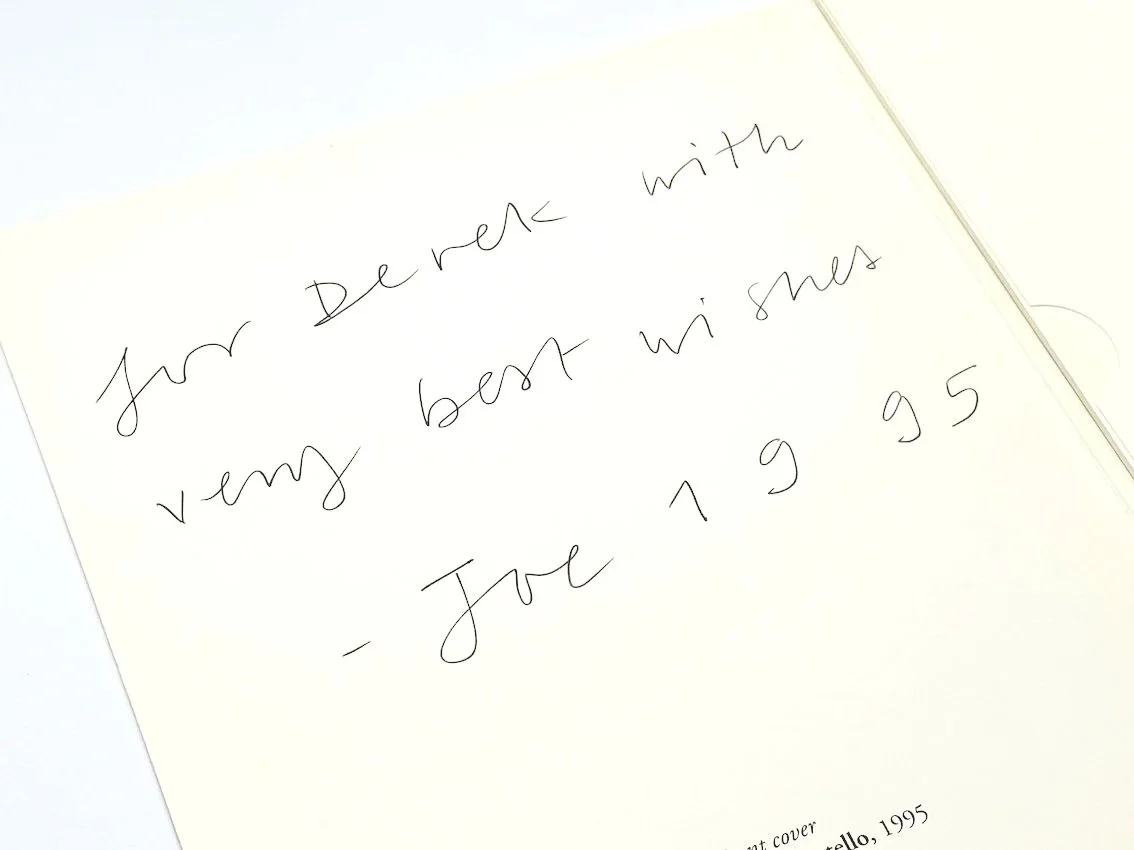 for Derek with
very best wishes
- Joe 1995
cover
1995